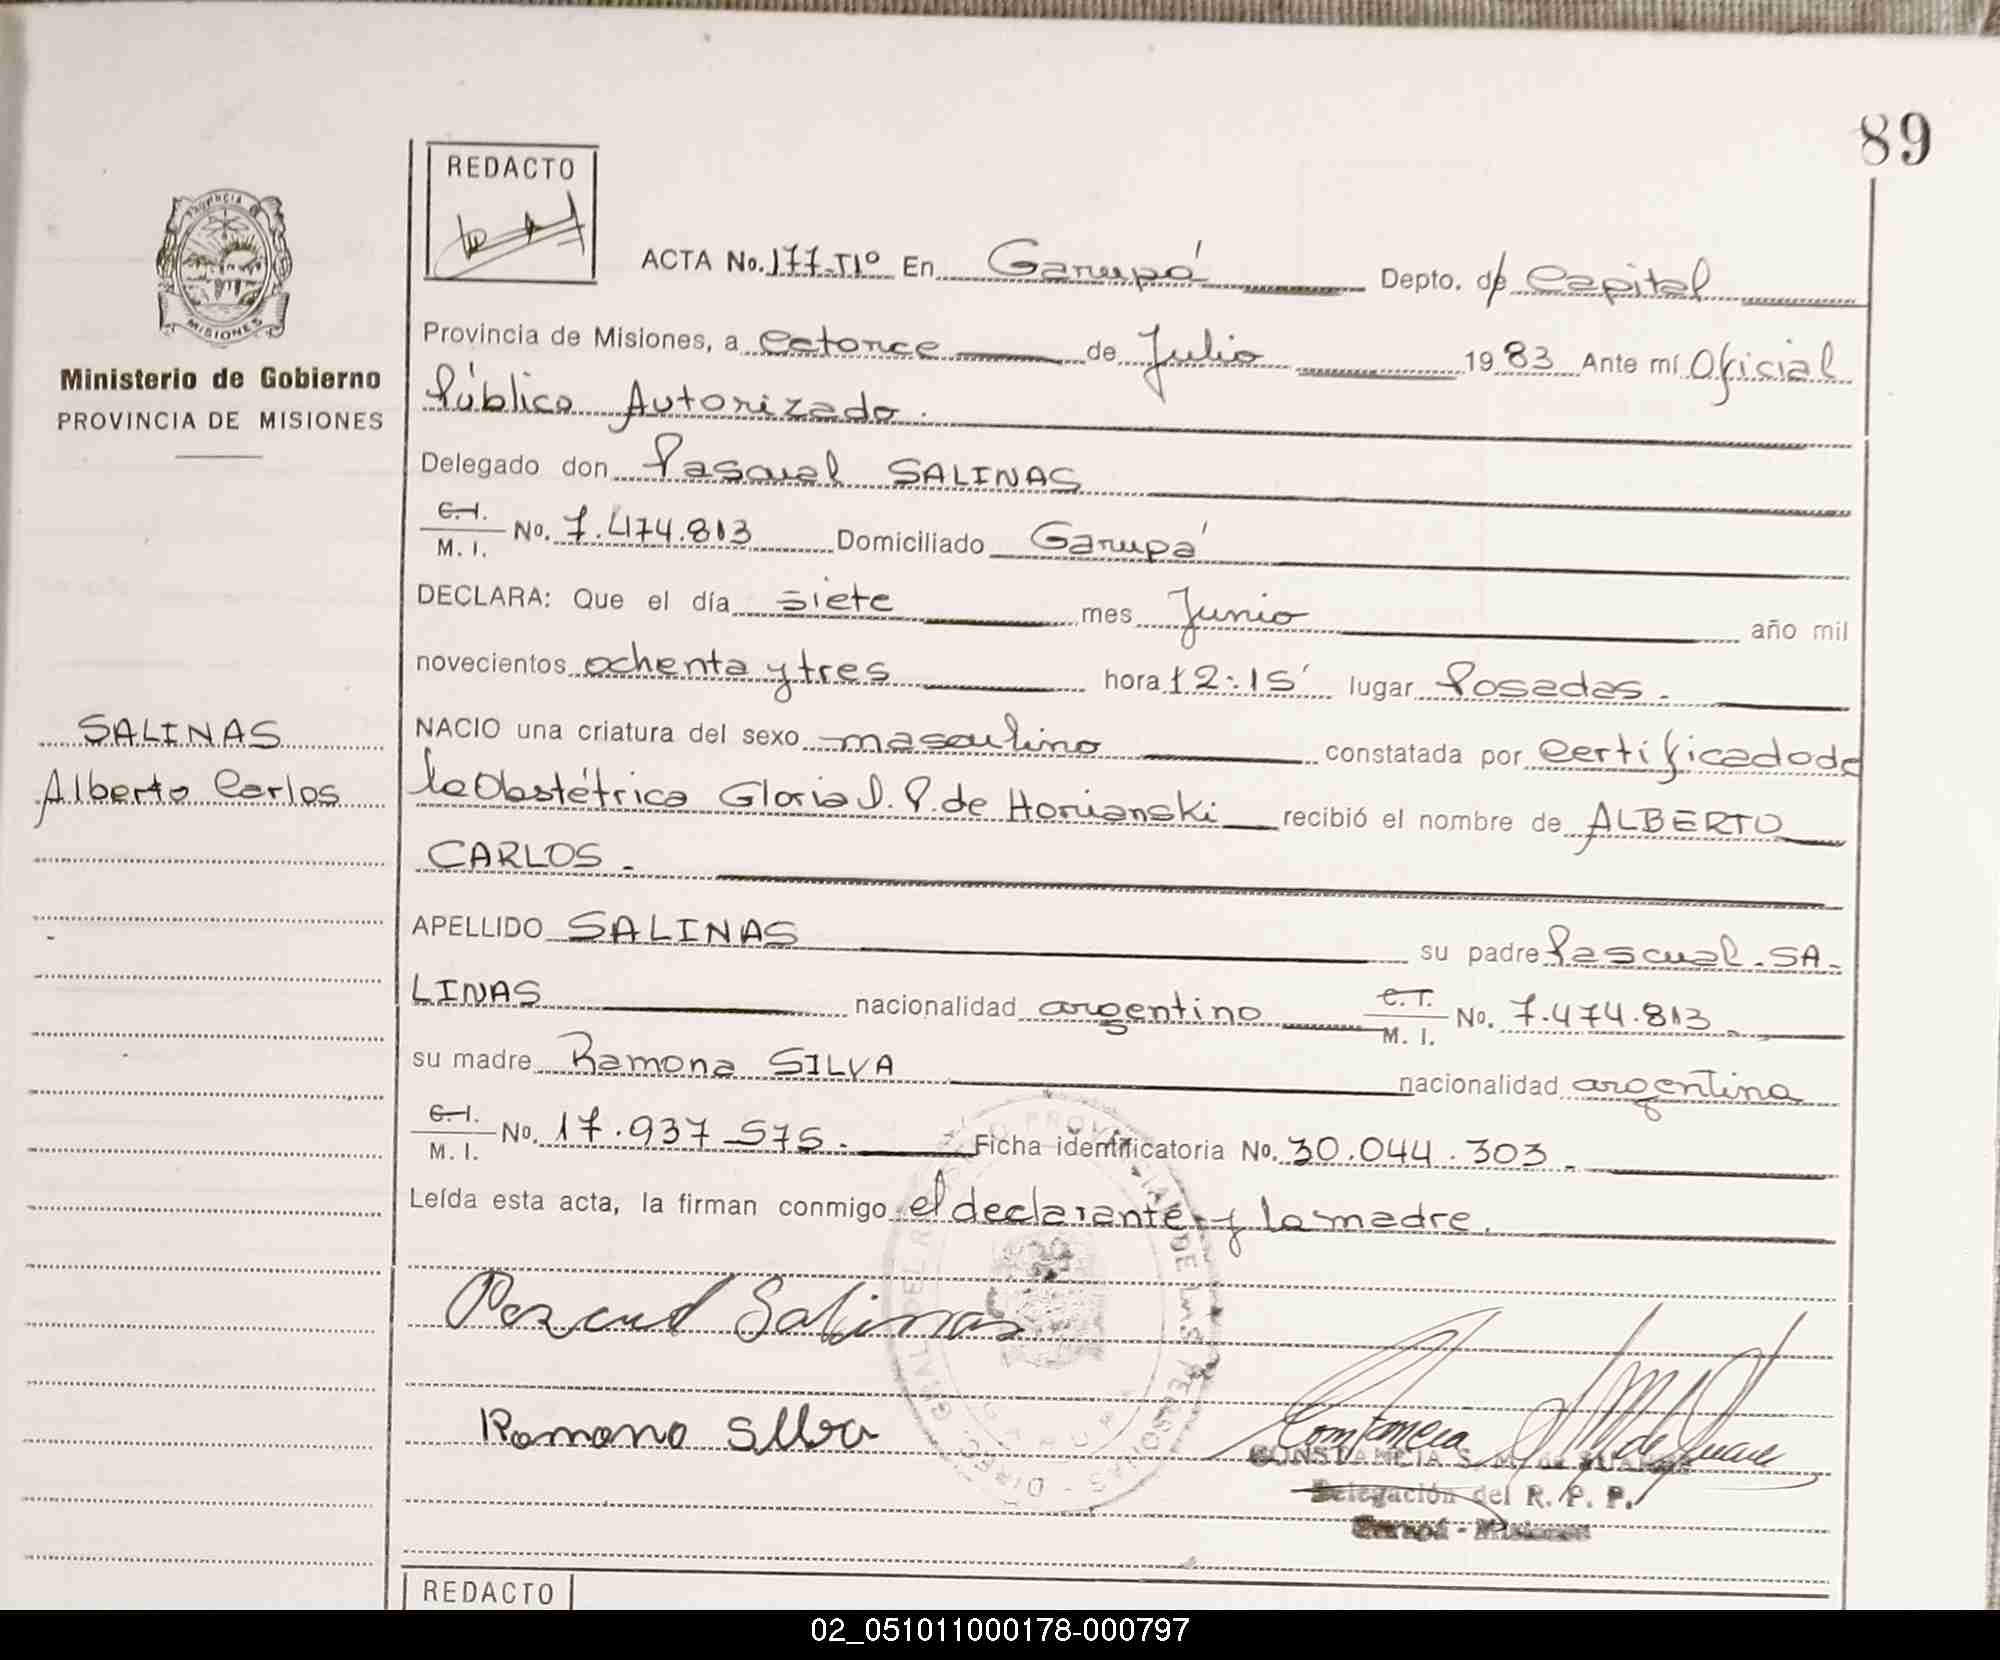 89
REDACTO
PROVINCIA DE
MISIONES
Ministerio de Gobierno
PROVINCIA DE MISIONES
ACTA No. 177-TIº En Garupá Depto. de Capital
Provincia de Misiones, a catorce de Julio 1983 Ante mí Oficial
Público Autorizado.
Delegado don Pascual SALINAS
C.I. M. I. No. 7.474.813 Domiciliado Garupá
DECLARA: Que el día siete mes Junio año mil
novecientos ochenta y tres hora 12:15' lugar Posadas.
SALINAS
Alberto Carlos
NACIO una criatura del sexo masculino constatada por certificado de
la Obstétrica Gloria I. P. de Horianski recibió el nombre de ALBERTO
CARLOS.
APELLIDO SALINAS su padre Pascual SA-
LINAS nacionalidad argentino C.I. M. I. No. 7.474.813
su madre Ramona SILVA nacionalidad argentina
C.I. M. I. No. 17.937.575. Ficha identificatoria No. 30.044.303.
Leída esta acta, la firman conmigo el declarante y la madre.
Pascual Salinas
Ramona Silva
CONSTANCIA S. M. de
Delegación del R. P. P.
Garupá - Misiones
REDACTO
02_051011000178-000797